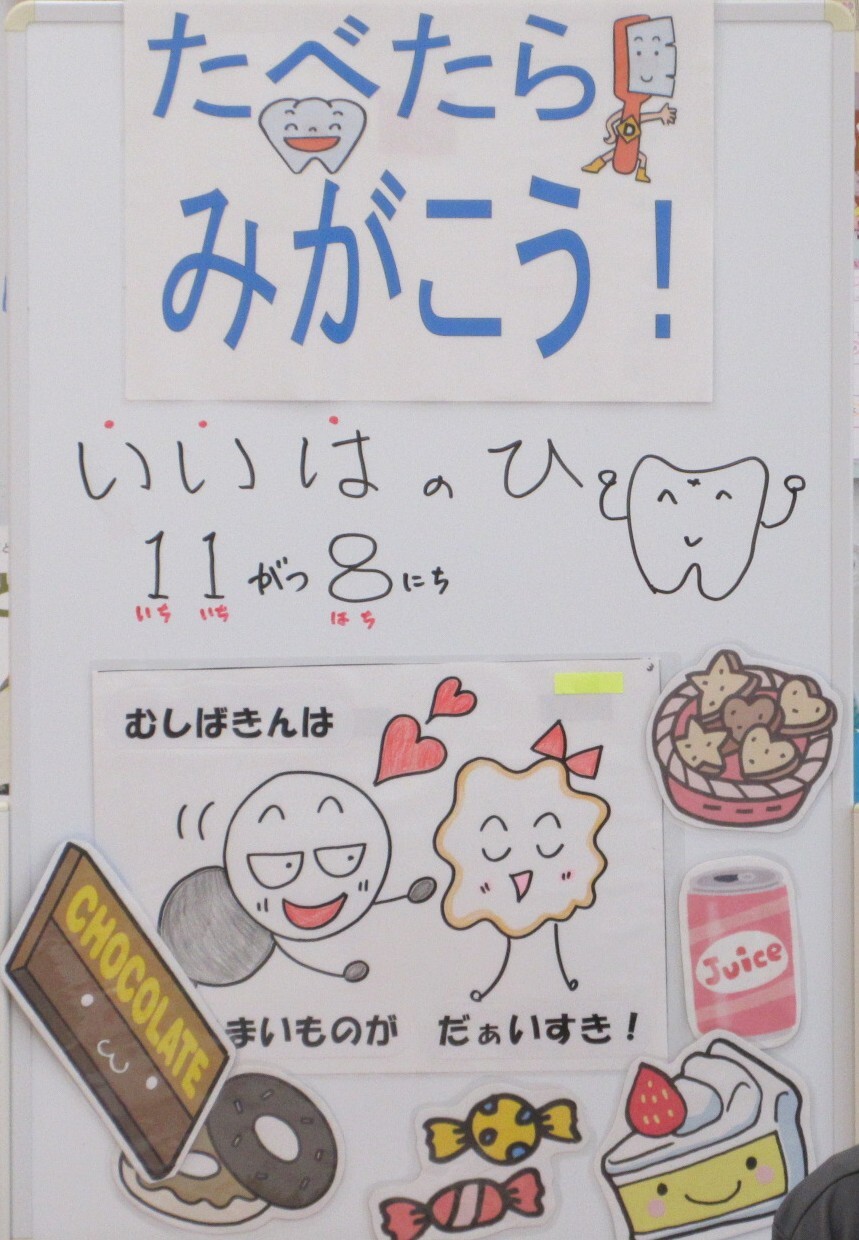 たべたら
みがこう！
いいはのひ
11がつ8にち
いち いち はち
むしばきんは
まいものが だぁいすき！
CHOCOLATE
Juice
D